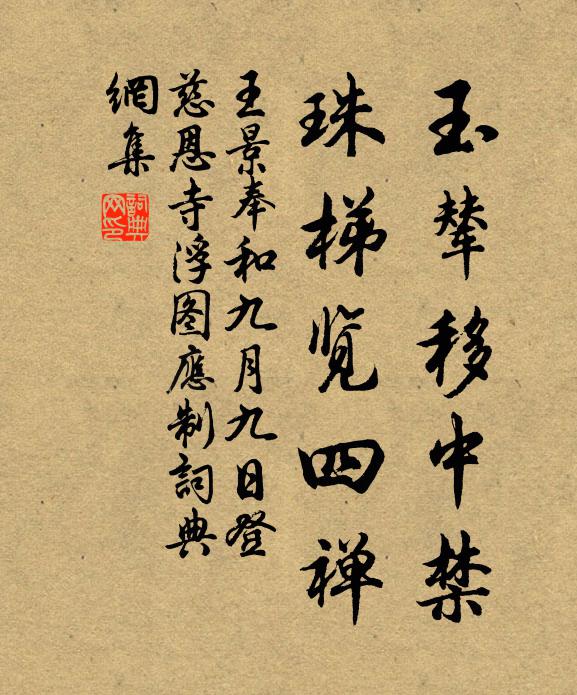 玉辇移中禁
珠梯览四禅
王景奉和九月九日登
慈恩寺浮图應制詞典
網集
詞典网印